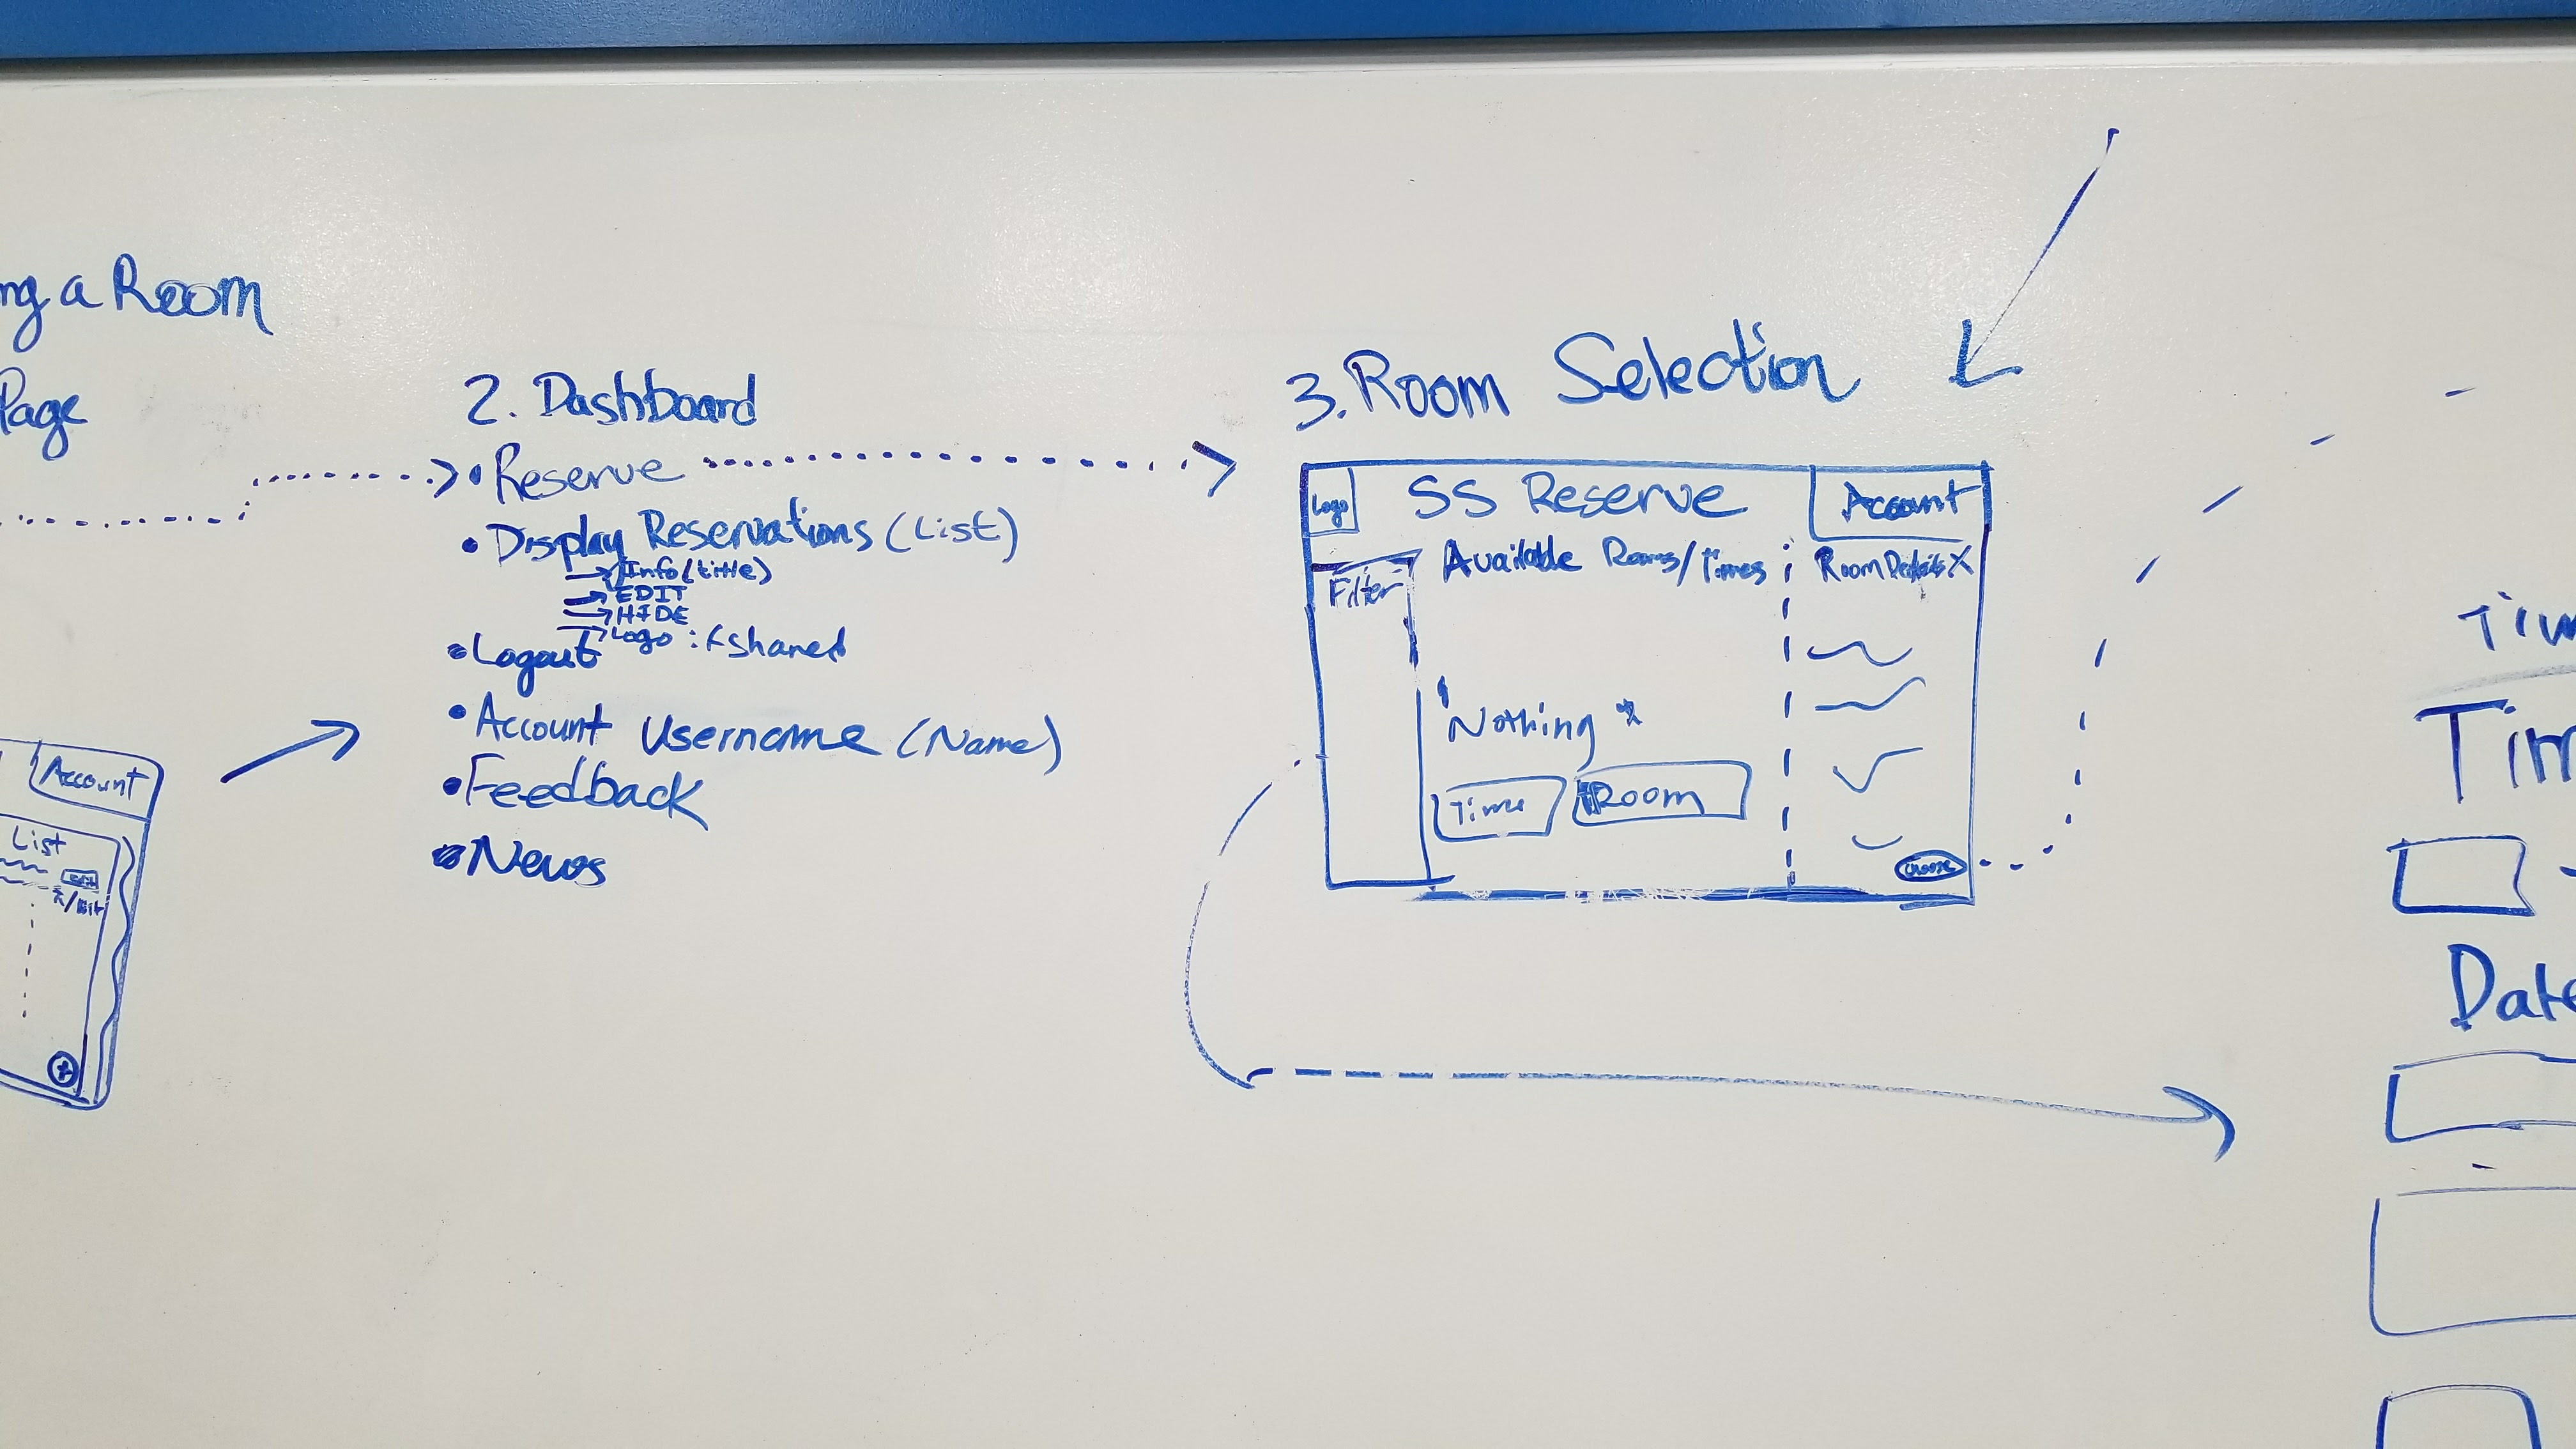 ng a Room
Page
Account
List
Edit
2. Dashboard
• Reserve
• Display Reservations (List)
→ Info (title)
→ EDIT
→ HIDE
→ Logo : if shared
• Logout
• Account Username (Name)
• Feedback
• News
3. Room Selection
Logo
SS Reserve
Account
Filter
Available Rooms/Times
Room Details X
Nothing *
Time
Room
Choose
Tim
Tim
Date